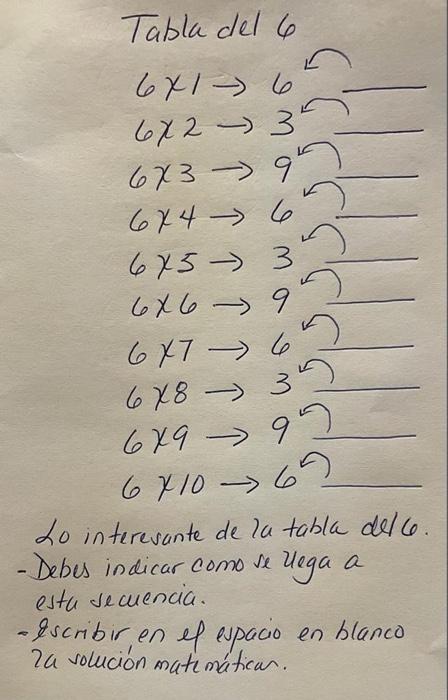 Tabla del 6
6x1 → 6 ____
6x2 → 3 ____
6x3 → 9 ____
6x4 → 6 ____
6x5 → 3 ____
6x6 → 9 ____
6x7 → 6 ____
6x8 → 3 ____
6x9 → 9 ____
6x10 → 6 ____
Lo interesante de la tabla del 6.
- Debes indicar como se llega a
esta secuencia.
- Escribir en el espacio en blanco
la solución matemáticas.